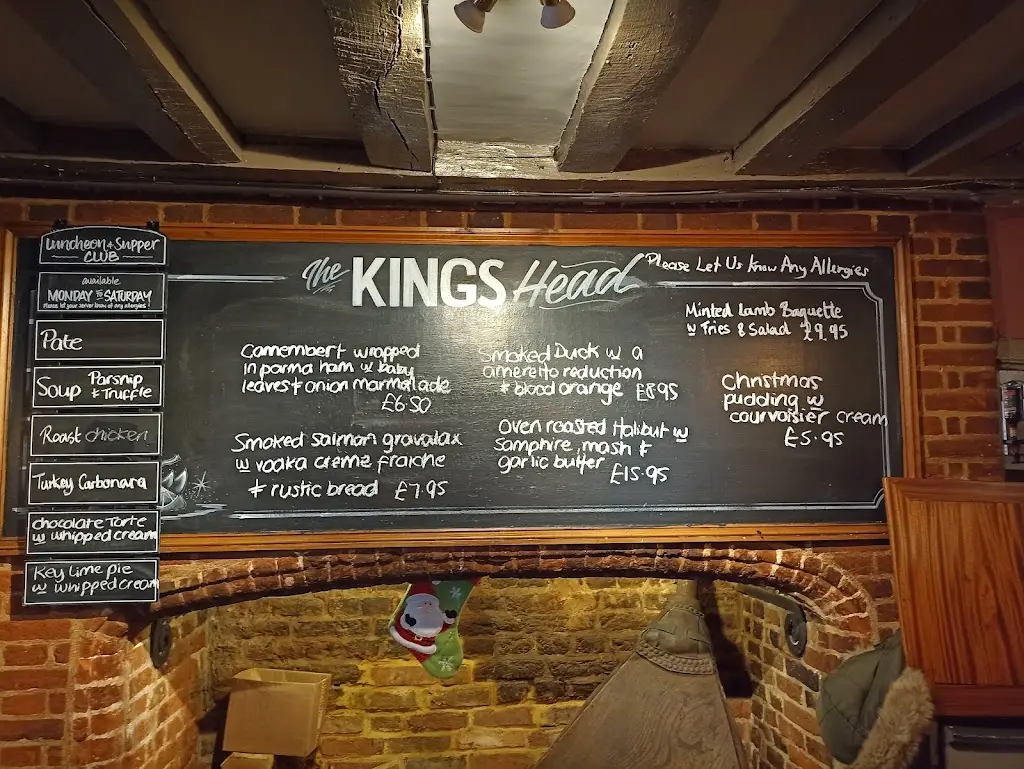 Luncheon + Supper
CLUB
available
MONDAY TO SATURDAY
Please let your server know of any allergies!
Pate
Soup Parsnip
& Truffle
Roast chicken
Turkey Carbonara
chocolate Torte
w whipped cream
Key lime pie
w whipped cream
The KINGS Head
Please Let Us Know Any Allergies
Camembert wrapped
in parma ham w baby
leaves + onion marmalade
£6.50
Smoked salmon gravalax
w vodka creme fraiche
+ rustic bread £7.95
Smoked Duck w a
ameretto reduction
+ blood orange £8.95
Oven roasted Halibut w
samphire, mash +
garlic butter £15.95
Minted Lamb Baguette
w Fries & Salad £9.95
Christmas
pudding w
courvoisier cream
£5.95